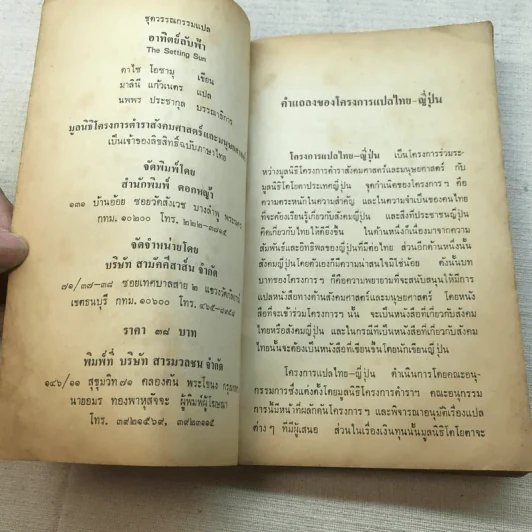 ชุดวรรณกรรมแปล
อาทิตย์ลับฟ้า
The Setting Sun
ดาไซ โอซามุ เขียน
มาลินี แก้วเนตร แปล
นพพร ประชากุล บรรณาธิการ
มูลนิธิโครงการตำราสังคมศาสตร์และมนุษยศาสตร์
เป็นเจ้าของลิขสิทธิ์ฉบับภาษาไทย
จัดพิมพ์โดย
สำนักพิมพ์ ดอกหญ้า
๑๓๑ บ้านอ้อย ซอยวัดสังเวช บางลำพู พระนคร
กทม. ๑๐๒๐๐ โทร. ๒๒๒-๓๓๑๕
จัดจำหน่ายโดย
บริษัท สามัคคีสาส์น จำกัด
๘๑/๓๗-๓๘ ซอยเทศบาลสาย ๒ แขวงวัดกัลยาณ์
เขตธนบุรี กทม. ๑๐๖๐๐ โทร. ๔๖๕-
ราคา ๓๘ บาท
พิมพ์ที่ บริษัท สารมวลชน จำกัด
๑๔๖/๑๑ สุขุมวิท ๗๑ คลองตัน พระโขนง กรุงเทพฯ
นายอมร ทองพาหุสัจจะ ผู้พิมพ์ผู้โฆษณา
โทร. ๓๙๒๑๕๖๙, ๓๙๒๓๑๑๕
คำแถลงของโครงการแปลไทย-ญี่ปุ่น
โครงการแปลไทย-ญี่ปุ่น เป็นโครงการร่วมระ-
หว่างมูลนิธิโครงการตำราสังคมศาสตร์และมนุษยศาสตร์ กับ
มูลนิธิโตโยตาประเทศญี่ปุ่น จุดกำเนิดของโครงการฯ คือ
ความตระหนักในความสำคัญ และในความจำเป็นของคนไทย
ที่จะต้องเรียนรู้เกี่ยวกับสังคมญี่ปุ่น และสิ่งที่ประชาชนญี่ปุ่น
คิดเกี่ยวกับไทยให้ดียิ่งขึ้น ในด้านหนึ่งก็เนื่องมาจากความ
สัมพันธ์และอิทธิพลของญี่ปุ่นที่มีต่อไทย ส่วนอีกด้านหนึ่งนั้น
สังคมญี่ปุ่นโดยตัวเองก็มีความน่าสนใจมิใช่น้อย ดังนั้นบท
บาทของโครงการฯ ก็คือความพยายามที่จะสนับสนุนให้มีการ
แปลหนังสือทางด้านสังคมศาสตร์และมนุษยศาสตร์ โดยหนัง
สือที่จะเข้าร่วมโครงการฯ นั้น จะเป็นหนังสือที่เกี่ยวกับสังคม
ไทยหรือสังคมญี่ปุ่น และในกรณีที่เป็นหนังสือที่เกี่ยวกับสังคม
ไทยนั้นจะต้องเป็นหนังสือที่เขียนขึ้นโดยนักเขียนญี่ปุ่น
โครงการแปลไทย-ญี่ปุ่น ดำเนินการโดยคณะอนุ-
กรรมการซึ่งแต่งตั้งโดยมูลนิธิโครงการตำราฯ คณะอนุกรรม
การนี้มีหน้าที่ผลักดันโครงการฯ และพิจารณาอนุมัติเรื่องแปล
ต่างๆ ที่มีผู้เสนอ ส่วนในเรื่องเงินทุนนั้นมูลนิธิโตโยตาจะ